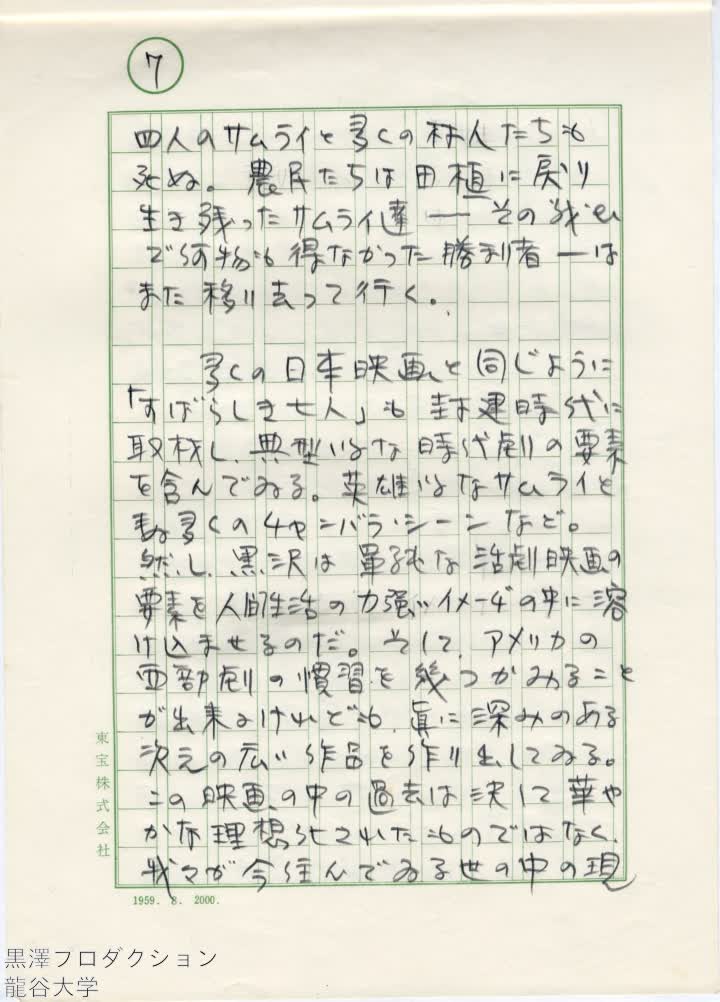 7
四人のサムライと多くの村人たちも
死ぬ。農民たちは田植に戻り
生き残ったサムライ達 ── その戦い
で何物も得なかった勝利者 ── は
また移り去って行く。
多くの日本映画と同じように
「すばらしき七人」も封建時代に
取材し、典型的な時代劇の要素
を含んでゐる。英雄的なサムライと
数多くのチャンバラ・シーンなど。
然し、黒沢は単純な活劇映画の
要素を人間生活の力強いイメージの中に溶
け込ませるのだ。そして、アメリカの
西部劇の慣習を幾つかみること
が出来るけれども、眞に深みのある
次元の広い作品を作り出してゐる。
この映画の中の過去は決して華や
かな理想化されたものではなく、
我々が今住んでゐる世の中の現
東宝株式会社
1959. 8. 2000.
黒澤プロダクション
龍谷大学